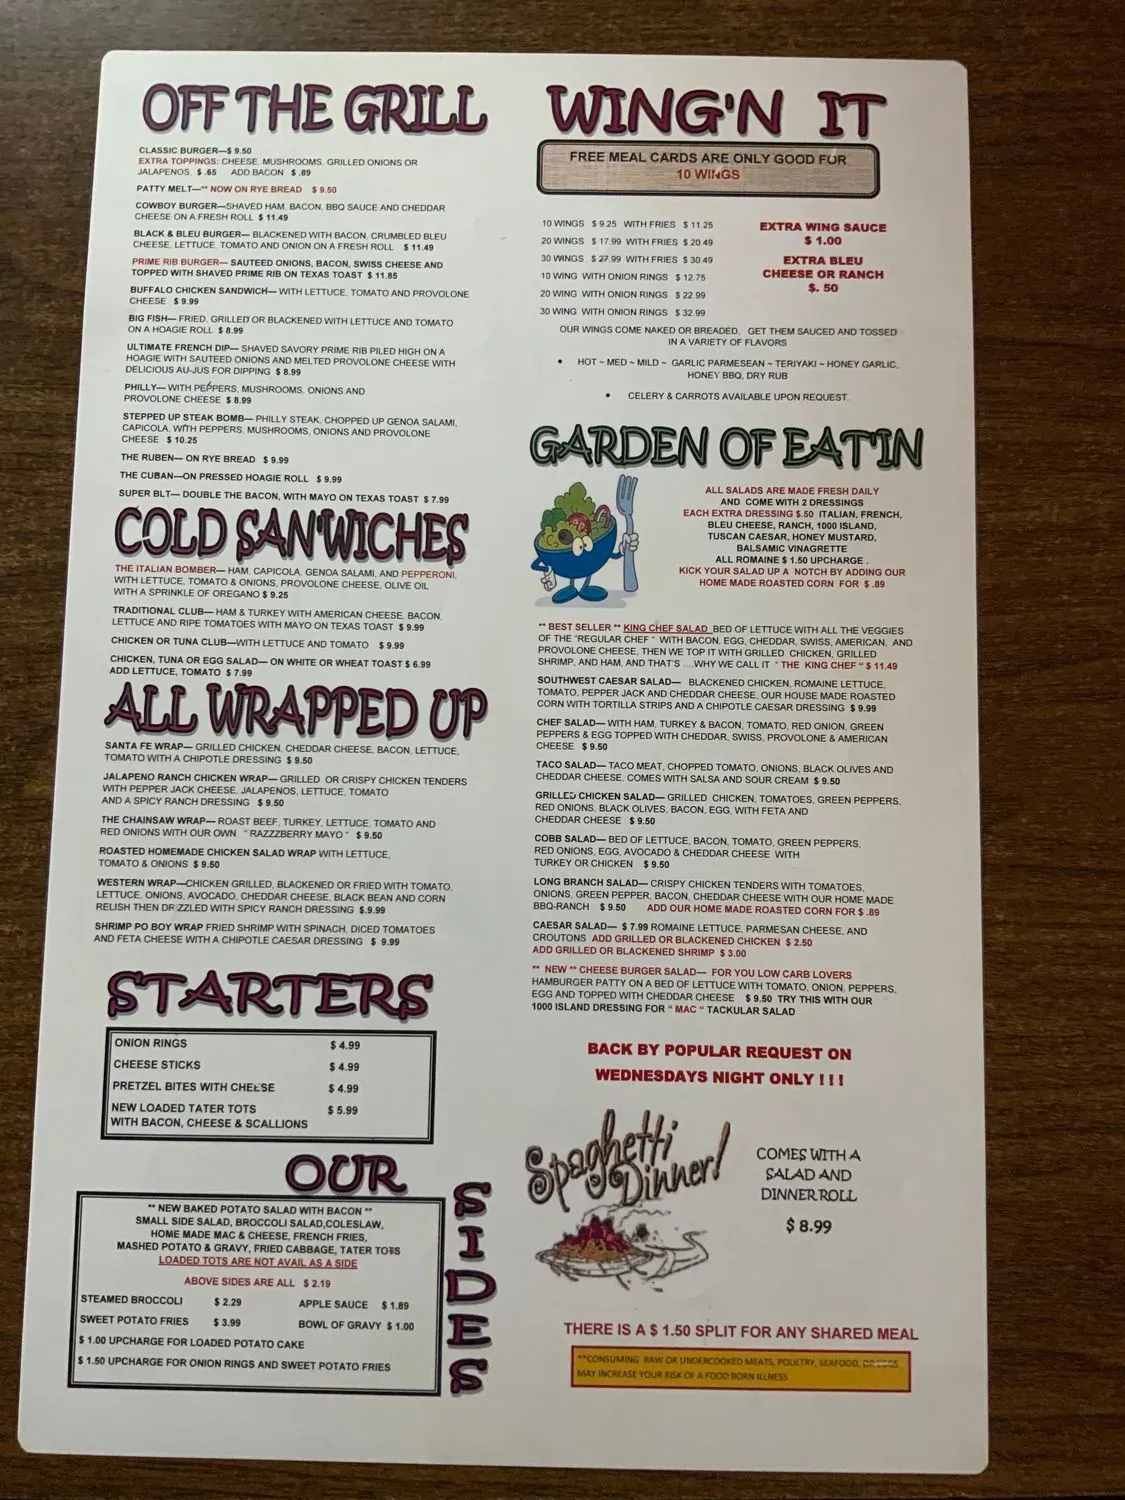 OFF THE GRILL
CLASSIC BURGER—$ 9.50
EXTRA TOPPINGS: CHEESE, MUSHROOMS, GRILLED ONIONS OR
JALAPENOS, $ .65 ADD BACON $ .89
PATTY MELT—** NOW ON RYE BREAD $ 9.50
COWBOY BURGER—SHAVED HAM, BACON, BBQ SAUCE AND CHEDDAR
CHEESE ON A FRESH ROLL $ 11.49
BLACK & BLEU BURGER— BLACKENED WITH BACON, CRUMBLED BLEU
CHEESE, LETTUCE, TOMATO AND ONION ON A FRESH ROLL $ 11.49
PRIME RIB BURGER— SAUTEED ONIONS, BACON, SWISS CHEESE AND
TOPPED WITH SHAVED PRIME RIB ON TEXAS TOAST $ 11.85
BUFFALO CHICKEN SANDWICH— WITH LETTUCE, TOMATO AND PROVOLONE
CHEESE $ 9.99
BIG FISH— FRIED, GRILLED OR BLACKENED WITH LETTUCE AND TOMATO
ON A HOAGIE ROLL $ 8.99
ULTIMATE FRENCH DIP— SHAVED SAVORY PRIME RIB PILED HIGH ON A
HOAGIE WITH SAUTEED ONIONS AND MELTED PROVOLONE CHEESE WITH
DELICIOUS AU-JUS FOR DIPPING $ 8.99
PHILLY— WITH PEPPERS, MUSHROOMS, ONIONS AND
PROVOLONE CHEESE $ 8.99
STEPPED UP STEAK BOMB— PHILLY STEAK, CHOPPED UP GENOA SALAMI,
CAPICOLA, WITH PEPPERS, MUSHROOMS, ONIONS AND PROVOLONE
CHEESE $ 10.25
THE RUBEN— ON RYE BREAD $ 9.99
THE CUBAN—ON PRESSED HOAGIE ROLL $ 9.99
SUPER BLT— DOUBLE THE BACON, WITH MAYO ON TEXAS TOAST $ 7.99
COLD SAN'WICHES
THE ITALIAN BOMBER— HAM, CAPICOLA, GENOA SALAMI, AND PEPPERONI,
WITH LETTUCE, TOMATO & ONIONS, PROVOLONE CHEESE, OLIVE OIL
WITH A SPRINKLE OF OREGANO $ 9.25
TRADITIONAL CLUB— HAM & TURKEY WITH AMERICAN CHEESE, BACON,
LETTUCE AND RIPE TOMATOES WITH MAYO ON TEXAS TOAST $ 9.99
CHICKEN OR TUNA CLUB—WITH LETTUCE AND TOMATO $ 9.99
CHICKEN, TUNA OR EGG SALAD— ON WHITE OR WHEAT TOAST $ 6.99
ADD LETTUCE, TOMATO $ 7.99
ALL WRAPPED UP
SANTA FE WRAP— GRILLED CHICKEN, CHEDDAR CHEESE, BACON, LETTUCE,
TOMATO WITH A CHIPOTLE DRESSING $ 9.50
JALAPENO RANCH CHICKEN WRAP— GRILLED OR CRISPY CHICKEN TENDERS
WITH PEPPER JACK CHEESE, JALAPENOS, LETTUCE, TOMATO
AND A SPICY RANCH DRESSING $ 9.50
THE CHAINSAW WRAP— ROAST BEEF, TURKEY, LETTUCE, TOMATO AND
RED ONIONS WITH OUR OWN " RAZZZBERRY MAYO " $ 9.50
ROASTED HOMEMADE CHICKEN SALAD WRAP WITH LETTUCE,
TOMATO & ONIONS $ 9.50
WESTERN WRAP—CHICKEN GRILLED, BLACKENED OR FRIED WITH TOMATO,
LETTUCE, ONIONS, AVOCADO, CHEDDAR CHEESE, BLACK BEAN AND CORN
RELISH THEN DRIZZLED WITH SPICY RANCH DRESSING $.9.99
SHRIMP PO BOY WRAP FRIED SHRIMP WITH SPINACH, DICED TOMATOES
AND FETA CHEESE WITH A CHIPOTLE CAESAR DRESSING $ 9.99
STARTERS
ONION RINGS $ 4.99
CHEESE STICKS $ 4.99
PRETZEL BITES WITH CHEESE $ 4.99
NEW LOADED TATER TOTS $ 5.99
WITH BACON, CHEESE & SCALLIONS
OUR
SIDES
** NEW BAKED POTATO SALAD WITH BACON **
SMALL SIDE SALAD, BROCCOLI SALAD,COLESLAW,
HOME MADE MAC & CHEESE, FRENCH FRIES,
MASHED POTATO & GRAVY, FRIED CABBAGE, TATER TOTS
LOADED TOTS ARE NOT AVAIL AS A SIDE
ABOVE SIDES ARE ALL $ 2.19
STEAMED BROCCOLI $ 2.29 APPLE SAUCE $ 1.89
SWEET POTATO FRIES $ 3.99 BOWL OF GRAVY $ 1.00
$ 1.00 UPCHARGE FOR LOADED POTATO CAKE
$ 1.50 UPCHARGE FOR ONION RINGS AND SWEET POTATO FRIES
WING'N IT
FREE MEAL CARDS ARE ONLY GOOD FOR
10 WINGS
10 WINGS $ 9.25 WITH FRIES $ 11.25
20 WINGS $ 17.99 WITH FRIES $ 20.49
30 WINGS $ 27.99 WITH FRIES $ 30.49
10 WING WITH ONION RINGS $ 12.75
20 WING WITH ONION RINGS $ 22.99
30 WING WITH ONION RINGS $ 32.99
EXTRA WING SAUCE
$ 1.00
EXTRA BLEU
CHEESE OR RANCH
$. 50
OUR WINGS COME NAKED OR BREADED, GET THEM SAUCED AND TOSSED
IN A VARIETY OF FLAVORS
• HOT ~ MED ~ MILD ~ GARLIC PARMESEAN ~ TERIYAKI ~ HONEY GARLIC,
HONEY BBQ, DRY RUB
• CELERY & CARROTS AVAILABLE UPON REQUEST.
GARDEN OF EAT'IN
ALL SALADS ARE MADE FRESH DAILY
AND COME WITH 2 DRESSINGS
EACH EXTRA DRESSING $.50 ITALIAN, FRENCH,
BLEU CHEESE, RANCH, 1000 ISLAND,
TUSCAN CAESAR, HONEY MUSTARD,
BALSAMIC VINAGRETTE
ALL ROMAINE $ 1.50 UPCHARGE .
KICK YOUR SALAD UP A NOTCH BY ADDING OUR
HOME MADE ROASTED CORN FOR $ .89
** BEST SELLER ** KING CHEF SALAD BED OF LETTUCE WITH ALL THE VEGGIES
OF THE "REGULAR CHEF " WITH BACON, EGG, CHEDDAR, SWISS, AMERICAN, AND
PROVOLONE CHEESE, THEN WE TOP IT WITH GRILLED CHICKEN, GRILLED
SHRIMP, AND HAM, AND THAT'S ....WHY WE CALL IT " THE KING CHEF " $ 11.49
SOUTHWEST CAESAR SALAD— BLACKENED CHICKEN, ROMAINE LETTUCE,
TOMATO, PEPPER JACK AND CHEDDAR CHEESE, OUR HOUSE MADE ROASTED
CORN WITH TORTILLA STRIPS AND A CHIPOTLE CAESAR DRESSING $ 9.99
CHEF SALAD— WITH HAM, TURKEY & BACON, TOMATO, RED ONION, GREEN
PEPPERS & EGG TOPPED WITH CHEDDAR, SWISS, PROVOLONE & AMERICAN
CHEESE $ 9.50
TACO SALAD— TACO MEAT, CHOPPED TOMATO, ONIONS, BLACK OLIVES AND
CHEDDAR CHEESE. COMES WITH SALSA AND SOUR CREAM $ 9.50
GRILLED CHICKEN SALAD— GRILLED CHICKEN, TOMATOES, GREEN PEPPERS,
RED ONIONS, BLACK OLIVES, BACON, EGG, WITH FETA AND
CHEDDAR CHEESE $ 9.50
COBB SALAD— BED OF LETTUCE, BACON, TOMATO, GREEN PEPPERS,
RED ONIONS, EGG, AVOCADO & CHEDDAR CHEESE WITH
TURKEY OR CHICKEN $ 9.50
LONG BRANCH SALAD— CRISPY CHICKEN TENDERS WITH TOMATOES,
ONIONS, GREEN PEPPER, BACON, CHEDDAR CHEESE WITH OUR HOME MADE
BBQ-RANCH $ 9.50 ADD OUR HOME MADE ROASTED CORN FOR $ .89
CAESAR SALAD— $ 7.99 ROMAINE LETTUCE, PARMESAN CHEESE, AND
CROUTONS ADD GRILLED OR BLACKENED CHICKEN $ 2.50
ADD GRILLED OR BLACKENED SHRIMP $ 3.00
** NEW ** CHEESE BURGER SALAD— FOR YOU LOW CARB LOVERS
HAMBURGER PATTY ON A BED OF LETTUCE WITH TOMATO, ONION, PEPPERS,
EGG AND TOPPED WITH CHEDDAR CHEESE $ 9.50 TRY THIS WITH OUR
1000 ISLAND DRESSING FOR " MAC " TACKULAR SALAD
BACK BY POPULAR REQUEST ON
WEDNESDAYS NIGHT ONLY ! ! !
Spaghetti
Dinner!
COMES WITH A
SALAD AND
DINNER ROLL
$ 8.99
THERE IS A $ 1.50 SPLIT FOR ANY SHARED MEAL
**CONSUMING RAW OR UNDERCOOKED MEATS, POULTRY, SEAFOOD, OR EGGS
MAY INCREASE YOUR RISK OF A FOOD BORN ILLNESS